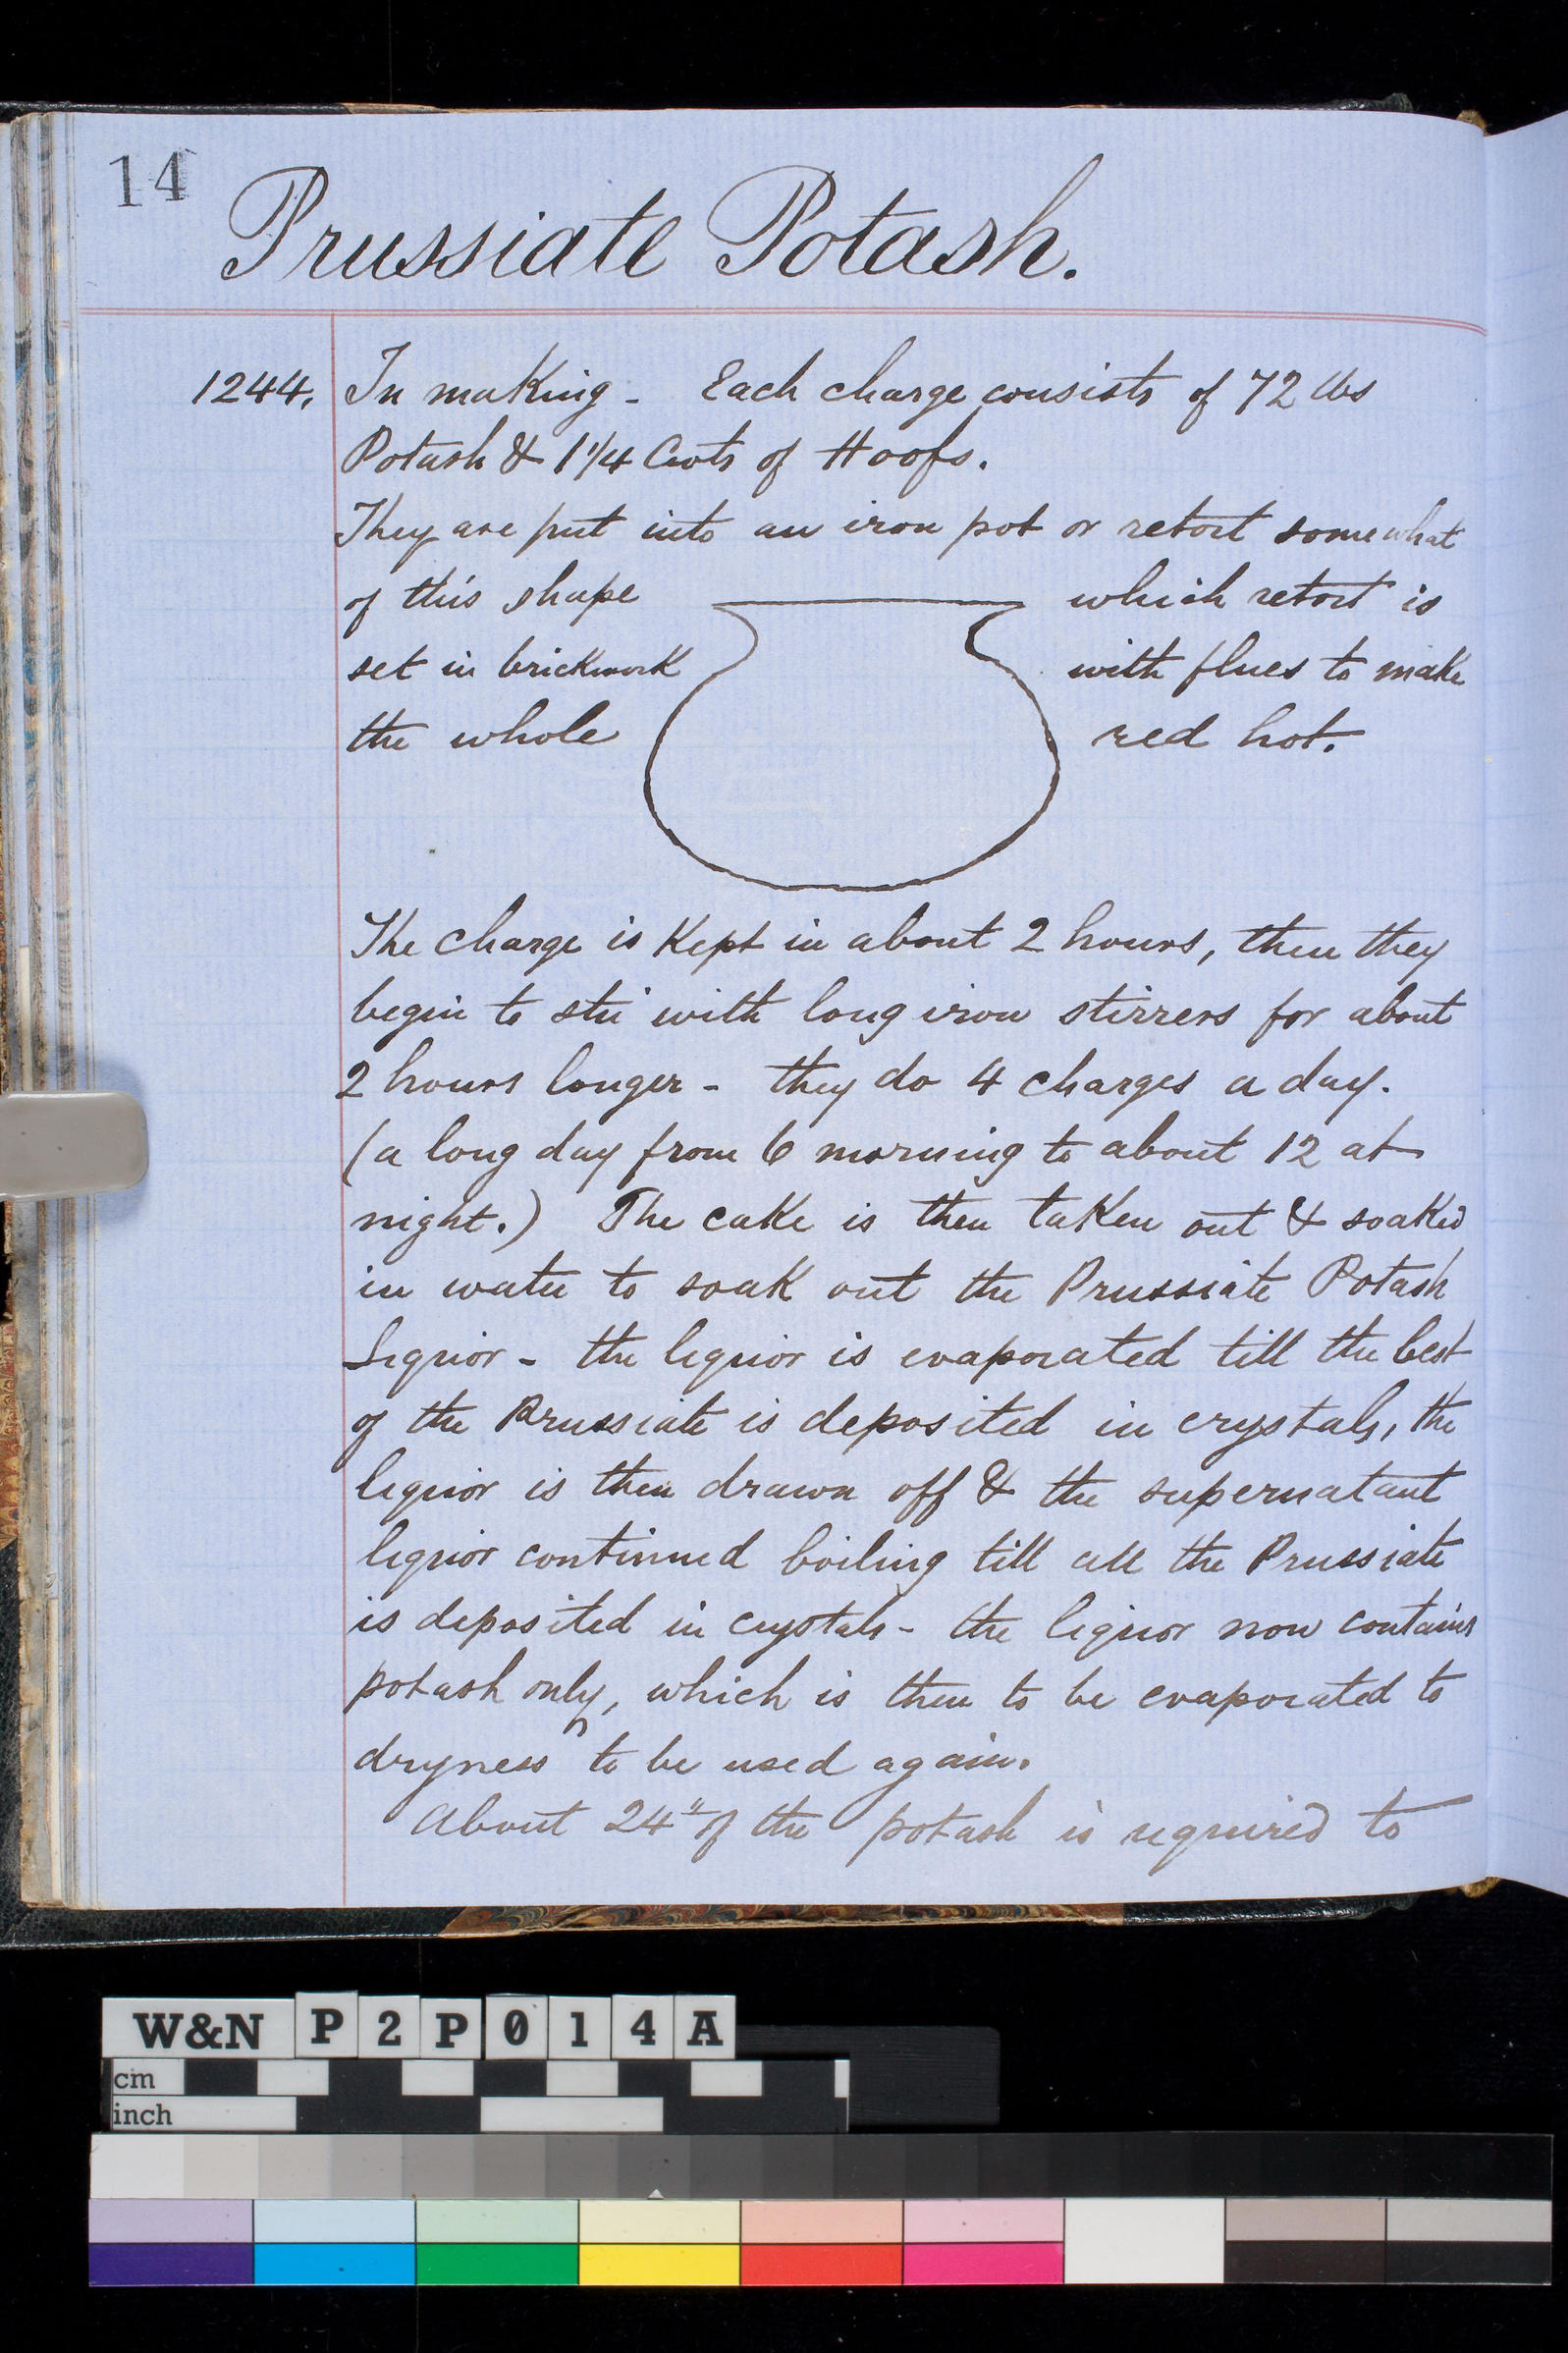 14
Prussiate Potash.
1244. In making - Each charge consists of 72 lbs
Potash & 1 1/4 Cwts of Hoofs.
They are put into an iron pot or retort somewhat
of this shape which retort is
set in brickwork with flues to make
the whole red hot.
The charge is kept in about 2 hours, then they
begin to stir with long iron stirrers for about
2 hours longer - they do 4 charges a day.
(a long day from 6 morning to about 12 at
night.) The cake is then taken out & soaked
in water to soak out the Prussiate Potash
Liquor - the liquor is evaporated till the best
of the Prussiate is deposited in crystals, the
liquor is then drawn off & the supernatant
liquor continued boiling till all the Prussiate
is deposited in crystals - the liquor now contains
potash only, which is then to be evaporated to
dryness to be used again.
About 24 of the potash is required to
W&N P2P014A
cm
inch